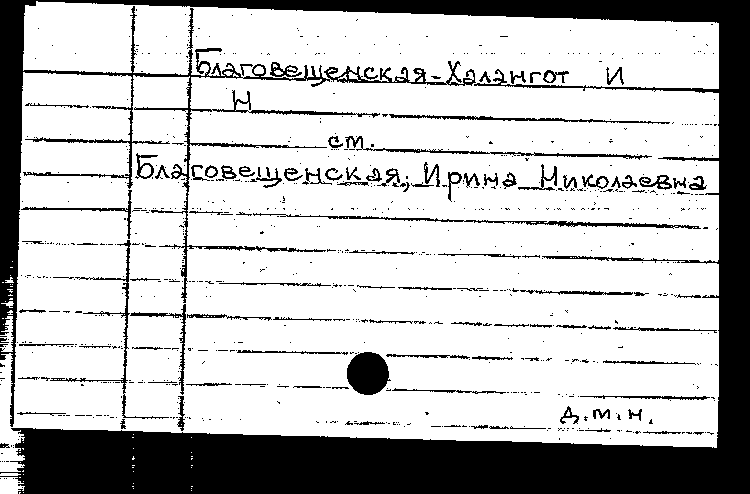 Благовещенская-Халангот И
Н
см.
Благовещенская, Ирина Николаевна
д.т.н.